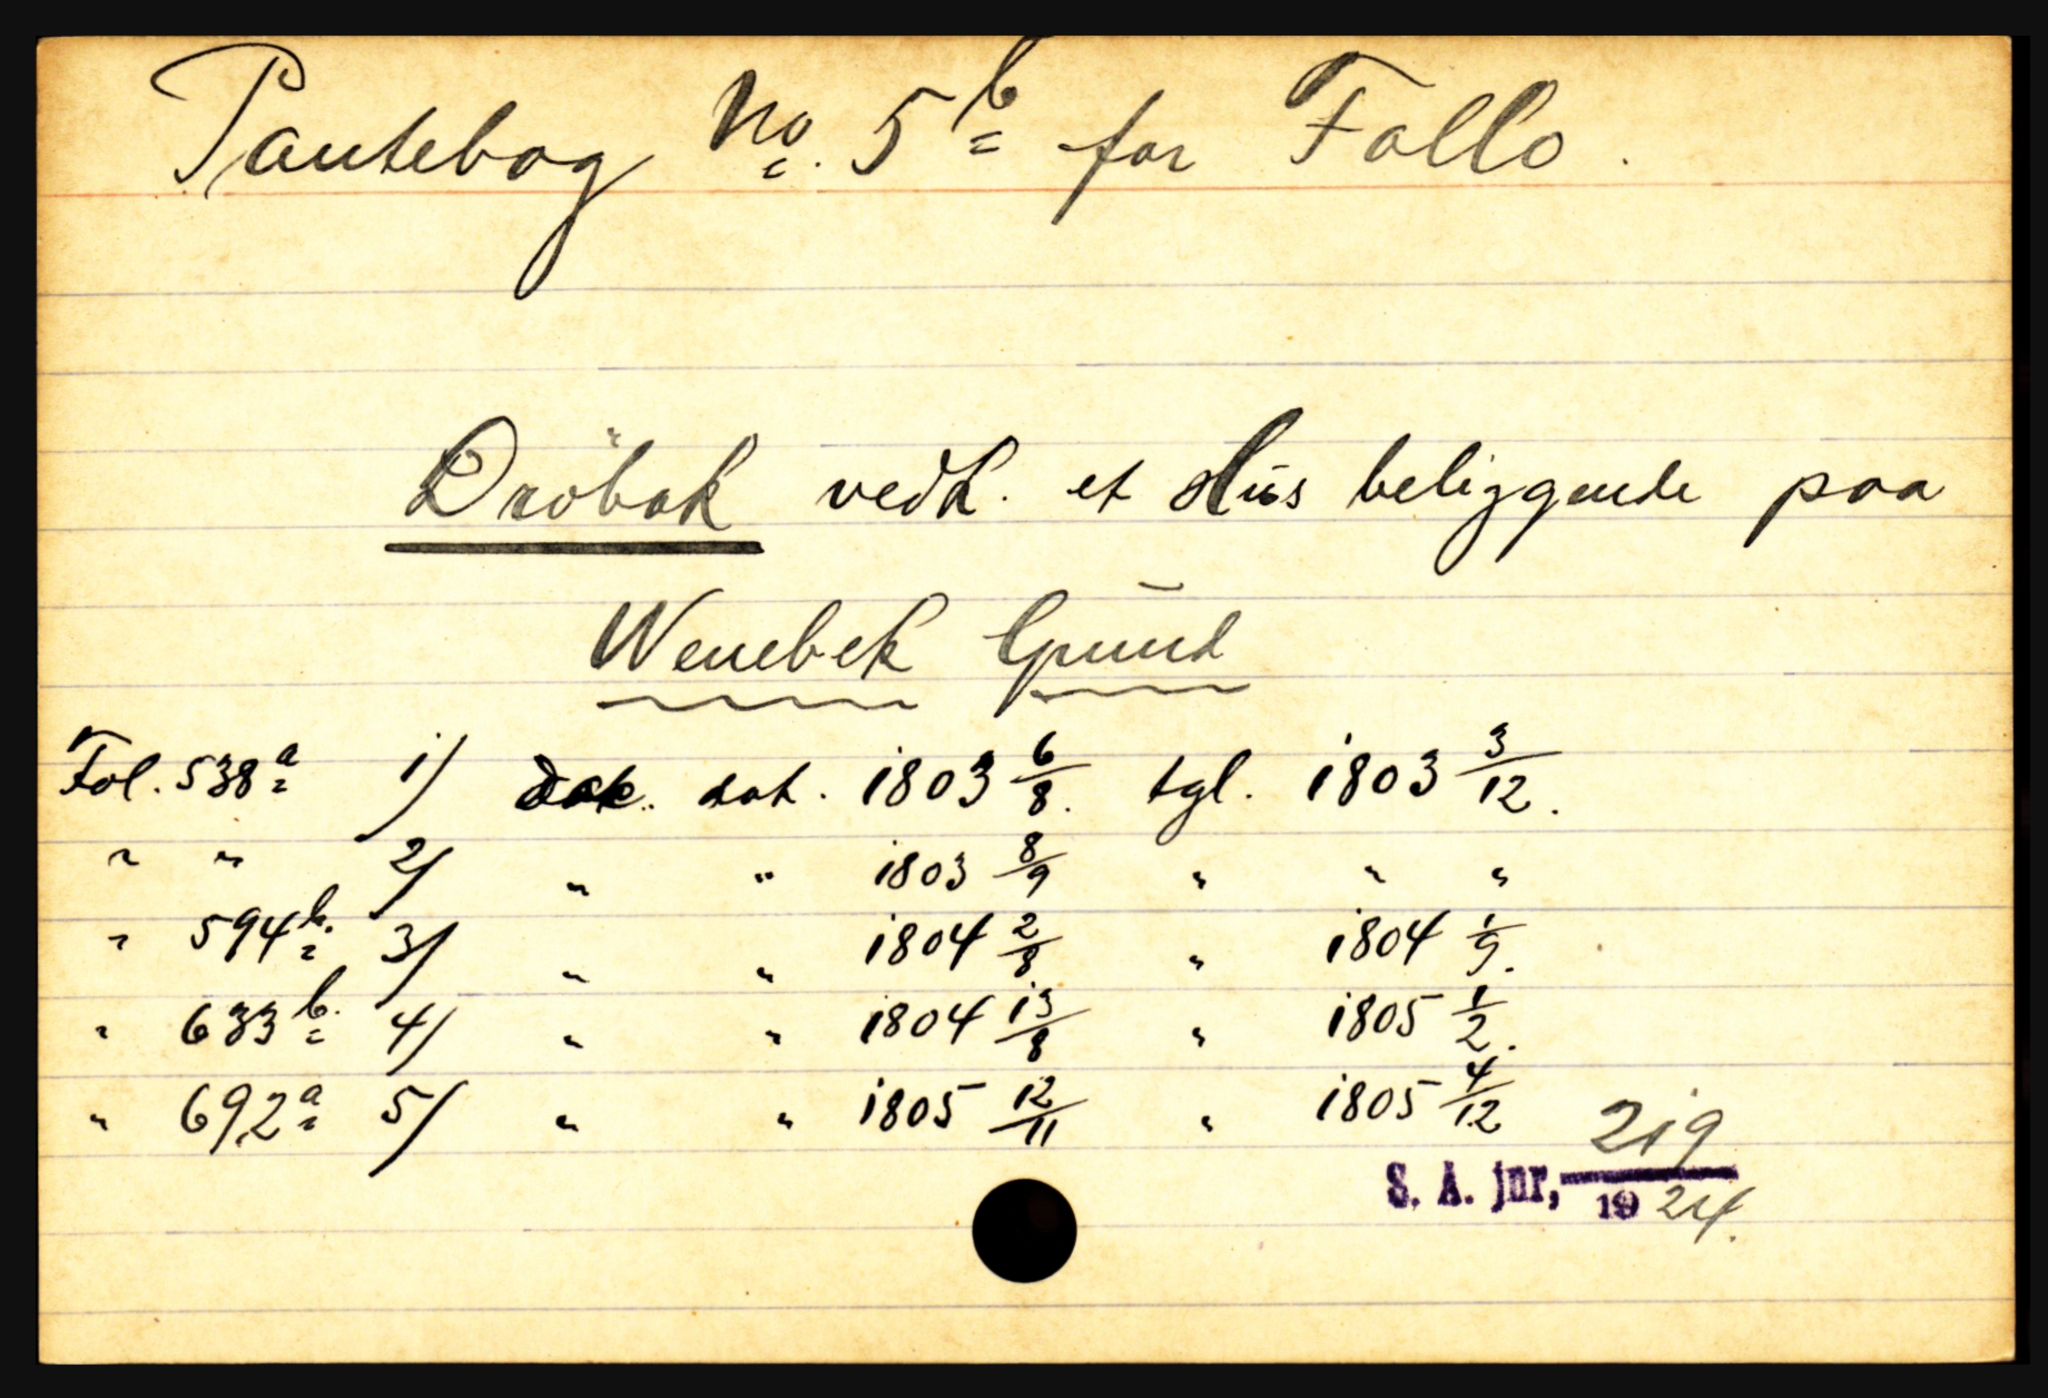 Pantebog No. 5b for Follo.
Dröbak vedk. et Hus beliggende paa
Wenebek Grund
Fol. 538a 1) Dok. dat. 1803 6/8. tgl. 1803 3/12.
" " 2) " " 1803 8/9 " " "
" 594b. 3) " " 1804 2/8. " 1804 1/9.
" 633b. 4) " " 1804 13/8 " 1805 1/2.
" 692a 5) " " 1805 12/11 " 1805 4/12
S. A. jnr, 219/1924.